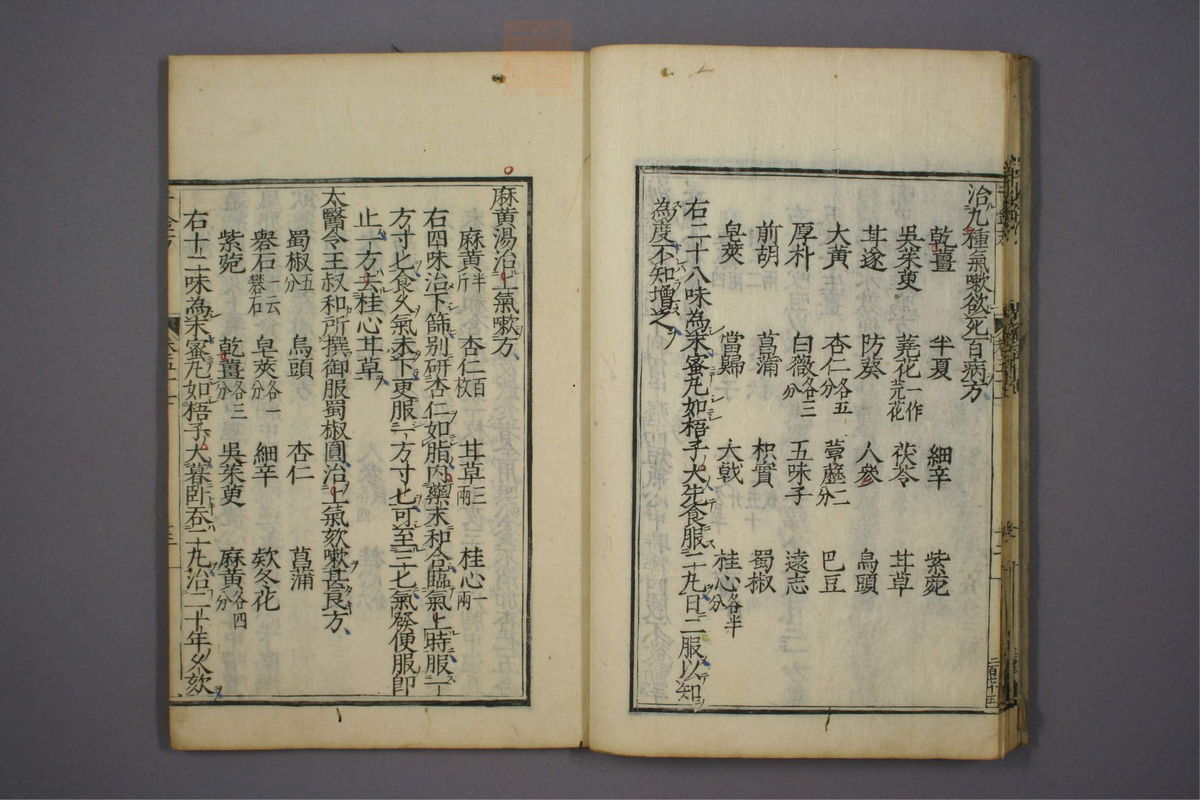 治九種氣嗽欲死百病方
乾薑 半夏 細辛 紫菀
吳茱萸 蕘花一作芫花 茯苓 甘草
甘遂 防葵 人參 烏頭
大黃 杏仁各五分 葶藶二分 巴豆
厚朴 白薇各三分 五味子 遠志
前胡 菖蒲 枳實 蜀椒
皂莢 當歸 大戟 桂心各半分
右二十八味為末蜜丸如梧子大先食服二丸日二服以知
為度不知增之
麻黃湯治上氣嗽方
麻黃半斤 杏仁百枚 甘草三兩 桂心一兩
右四味治下篩別研杏仁如脂內藥末和合臨氣上時服一
方寸匕食久氣未下更服一方寸匕可至三匕氣發便服即
止一方去桂心甘草
太醫令王叔和所撰御服蜀椒圓治上氣欬嗽甚良方
蜀椒五分 烏頭 杏仁 菖蒲
礜石一云礬石 皂莢各一分 細辛 欵冬花
紫菀 乾薑各三分 吳茱萸 麻黃各四分
右十二味為末蜜丸如梧子大暮臥吞二丸治二十年久欬